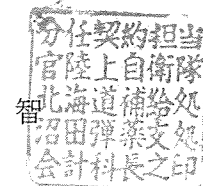 分任契約担当
官陸上自衛隊
北海道補給処
沼田弾薬支処
会計科長之印
智